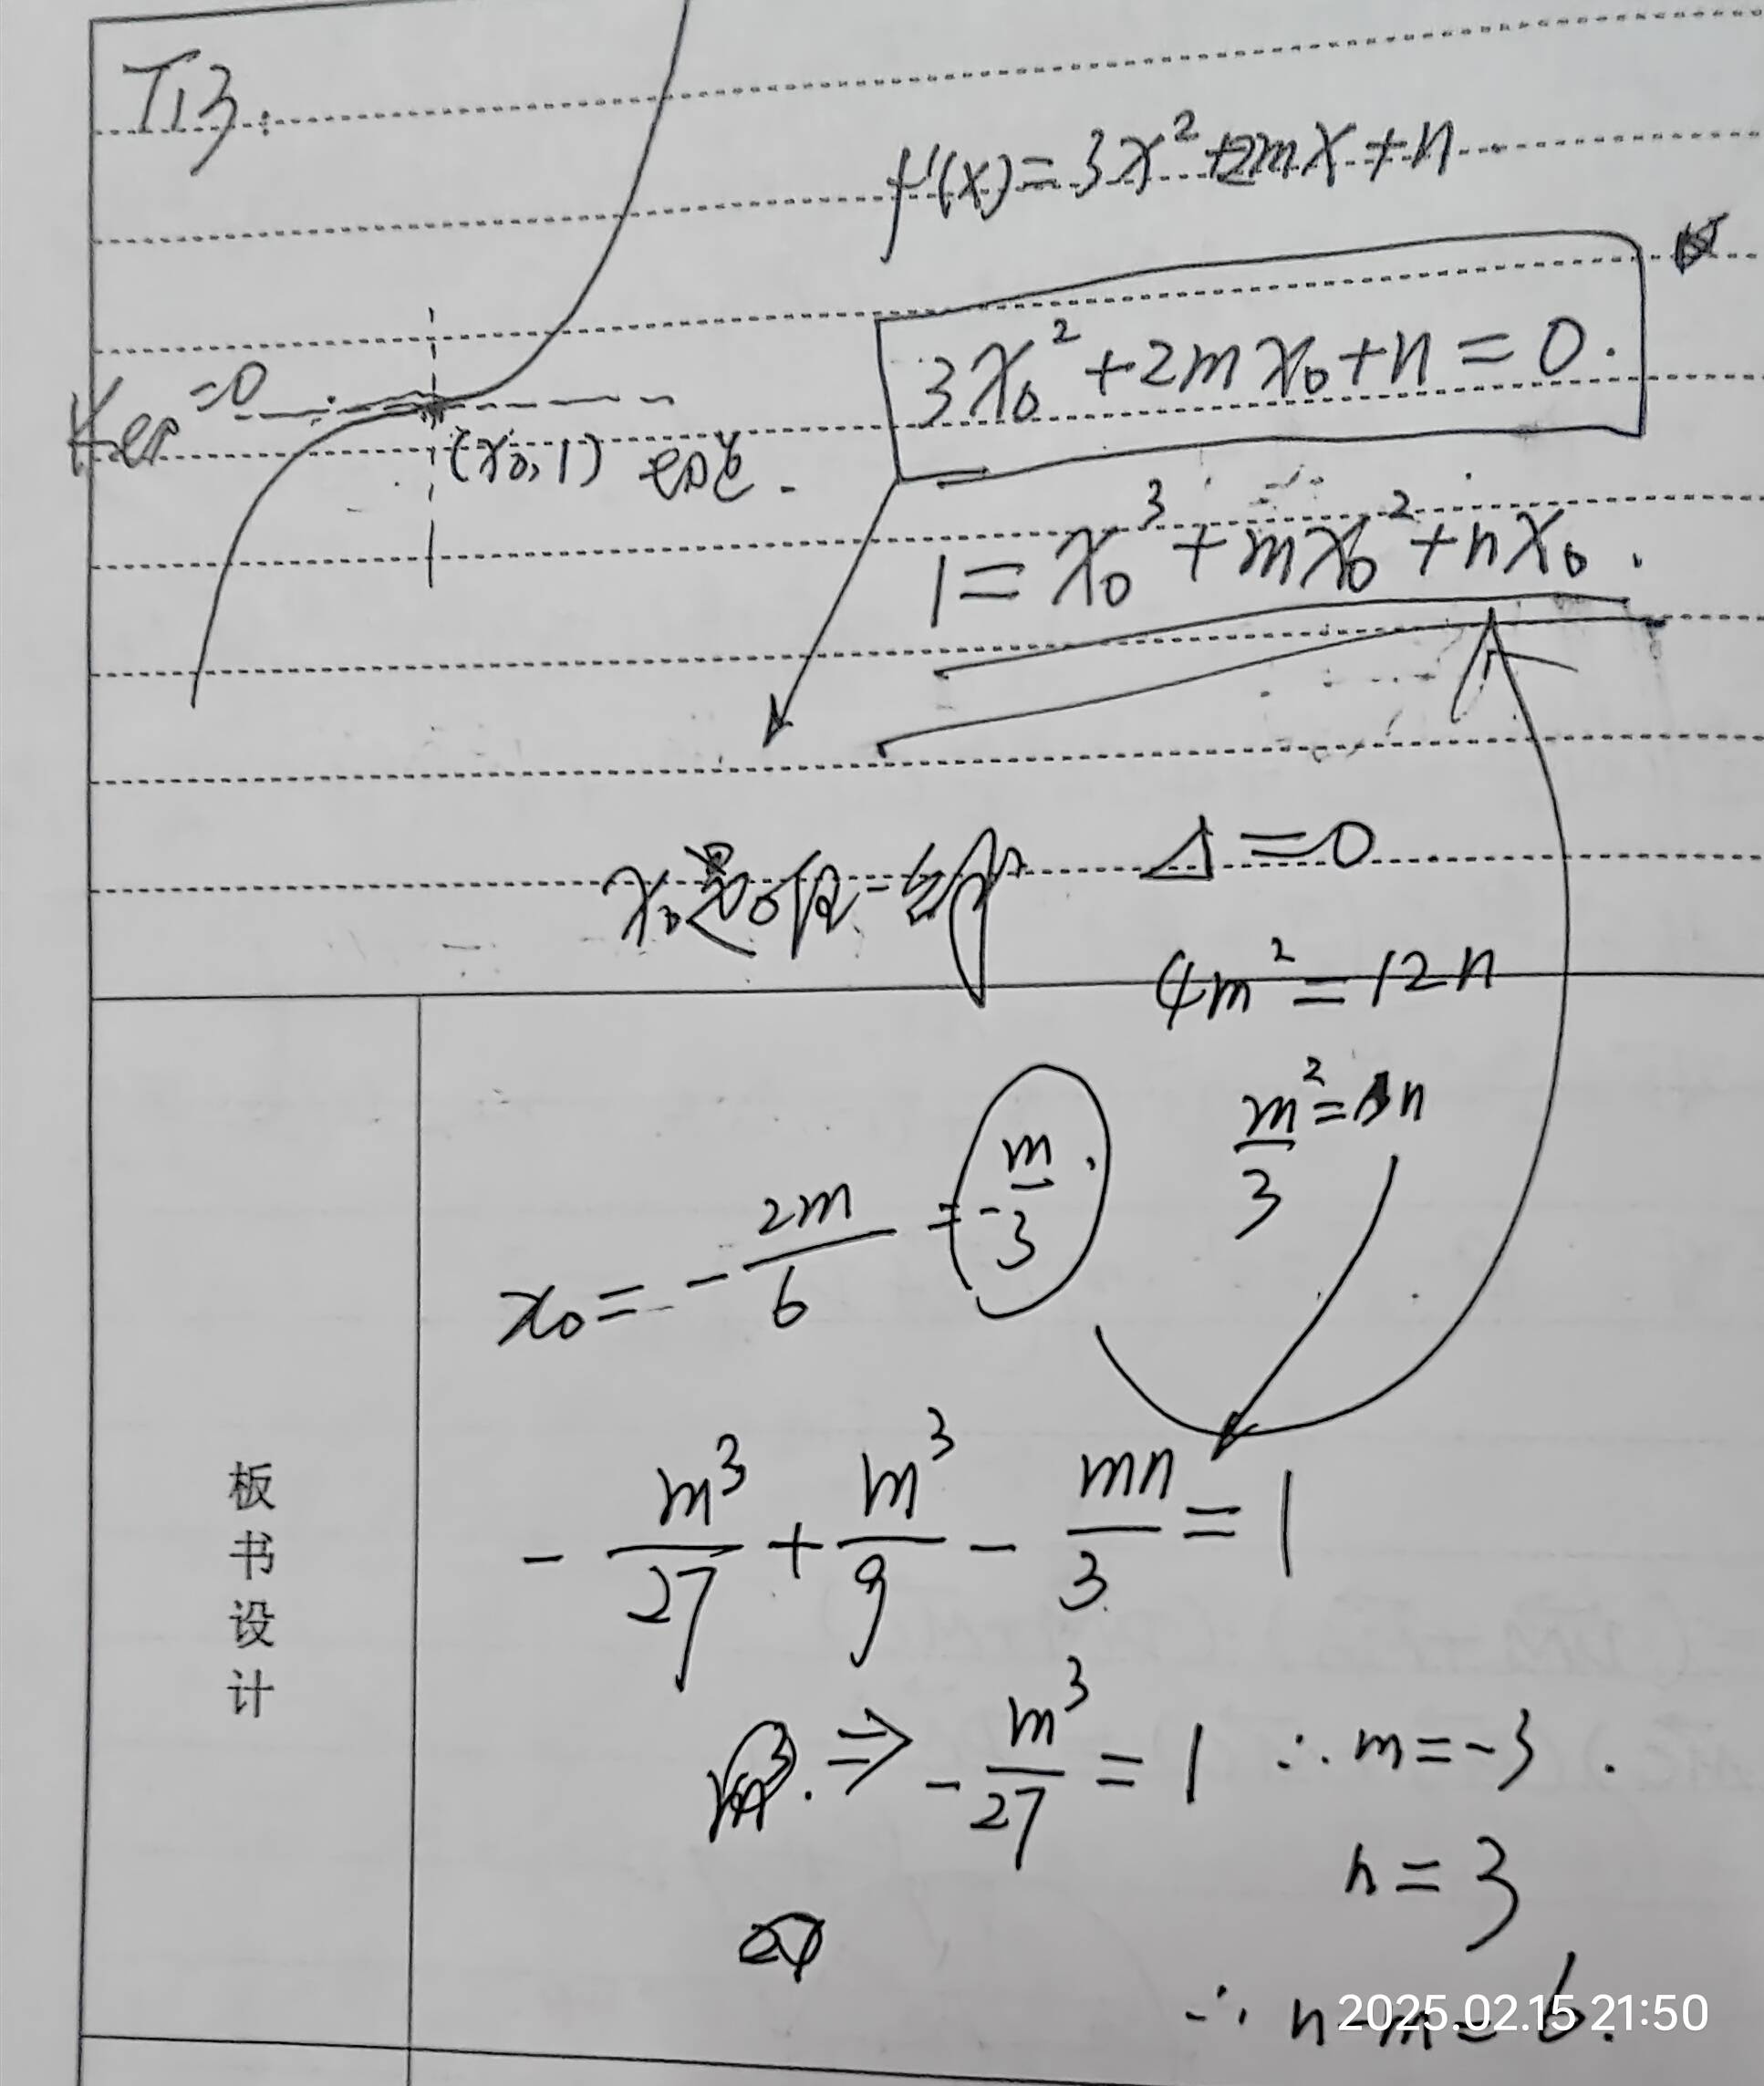 T13.
f'(x)=3x²+2mx+n
3x₀²+2mx₀+n=0.
=0
(x₀,1)
1=x₀³+mx₀²+nx₀.
x₀是 唯一的 Δ=0
4m²=12n
m²/3=n
x₀=-2m/6=-m/3.
-m³/27+m³/9-mn/3=1
⇒-m³/27=1 ∴m=-3.
n=3
∴n-m=6.
板书设计
2025.02.15 21:50